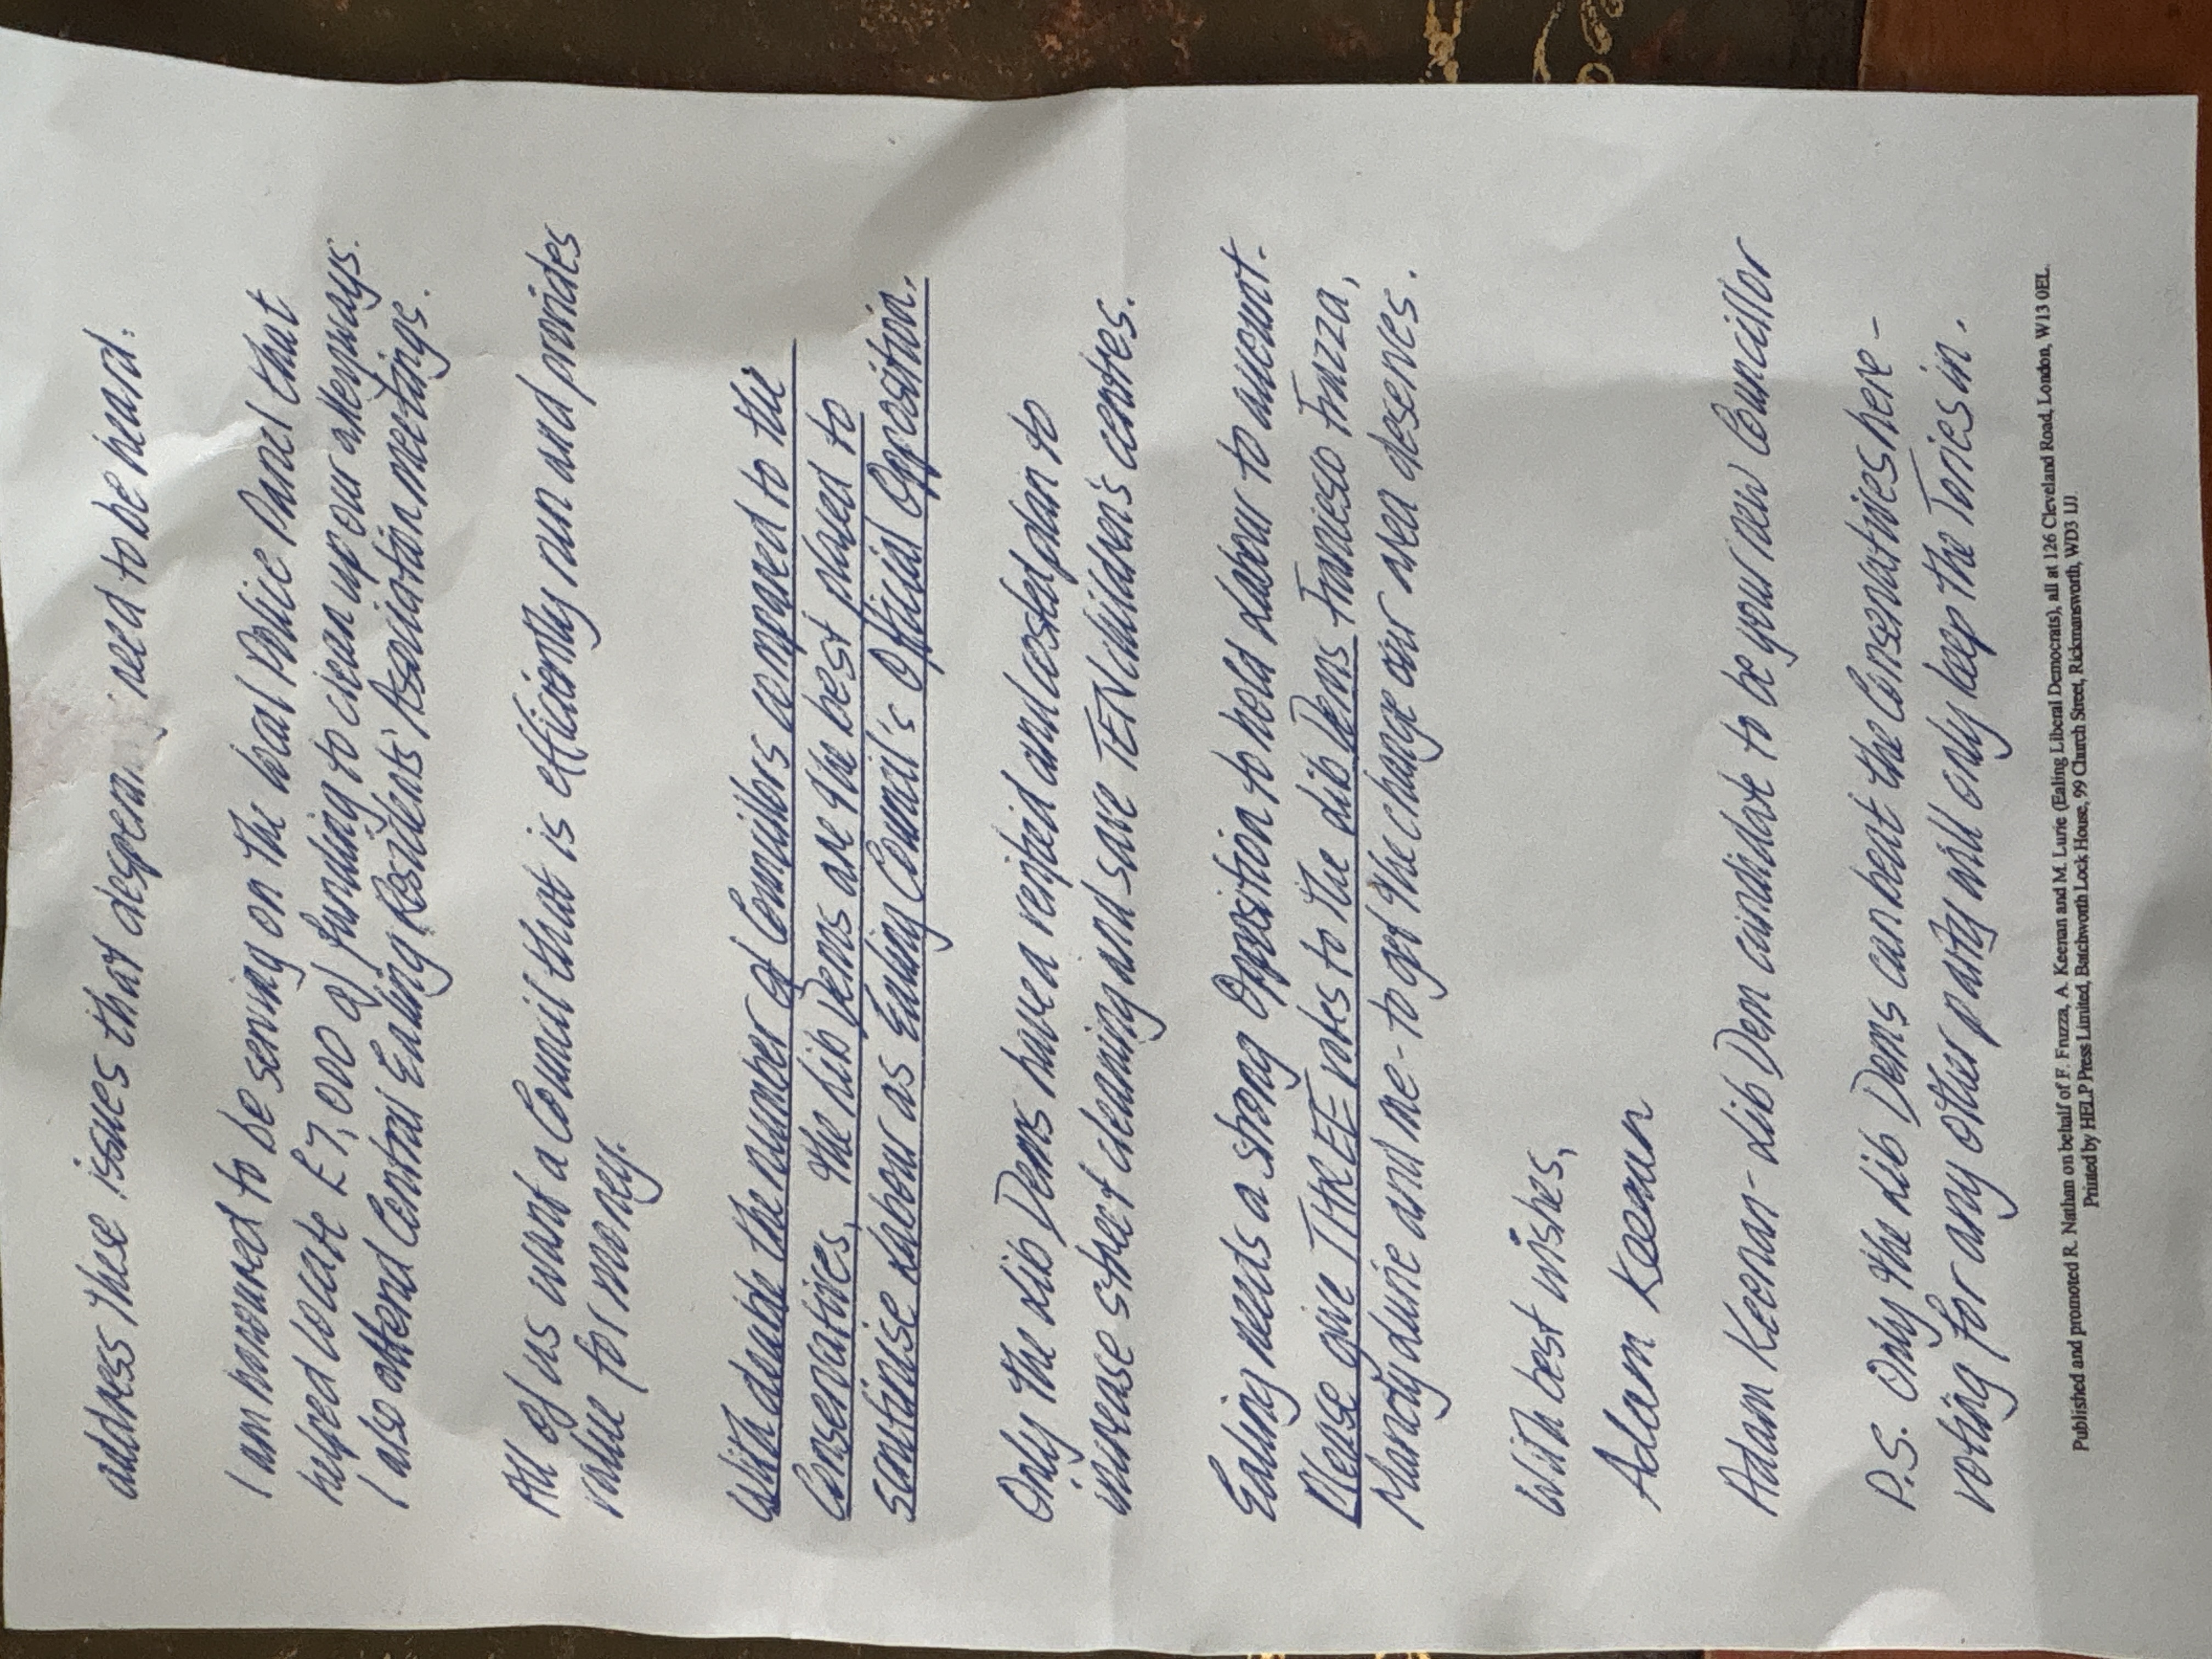 address these issues that desperat need to be heard:
I am honoured to be serving on the local Police Panel that
helped locate £7,000 of funding to clean up our alleyways.
I also attend Central Ealing Residents' Association meetings.
All of us want a Council that is efficiently run and provides
value for money.
With double the number of Councillors compared to the
Conservatives, the Lib Dems are the best placed to
scrutinise Labour as Ealing Council's Official Opposition.
Only the Lib Dems have a verified and costed plan to
increase street cleaning and save TEN children's centres.
Ealing needs a strong Opposition to hold Labour to account.
Please give THREE votes to the Lib Dems Francesco Fruzza,
Mandy Lurie and me - to get the change our area deserves.
With best wishes,
Adam Keenan
Adam Keenan - Lib Dem candidate to be your new Councillor
P.S. Only the Lib Dems can beat the Conservatives here -
voting for any other party will only keep the Tories in.
Published and promoted R. Nathan on behalf of F. Fruzza, A. Keenan and M. Lurie (Ealing Liberal Democrats), all at 126 Cleveland Road, London, W13 0EL.
Printed by HELP Press Limited, Batchworth Lock House, 99 Church Street, Rickmansworth, WD3 1JJ.